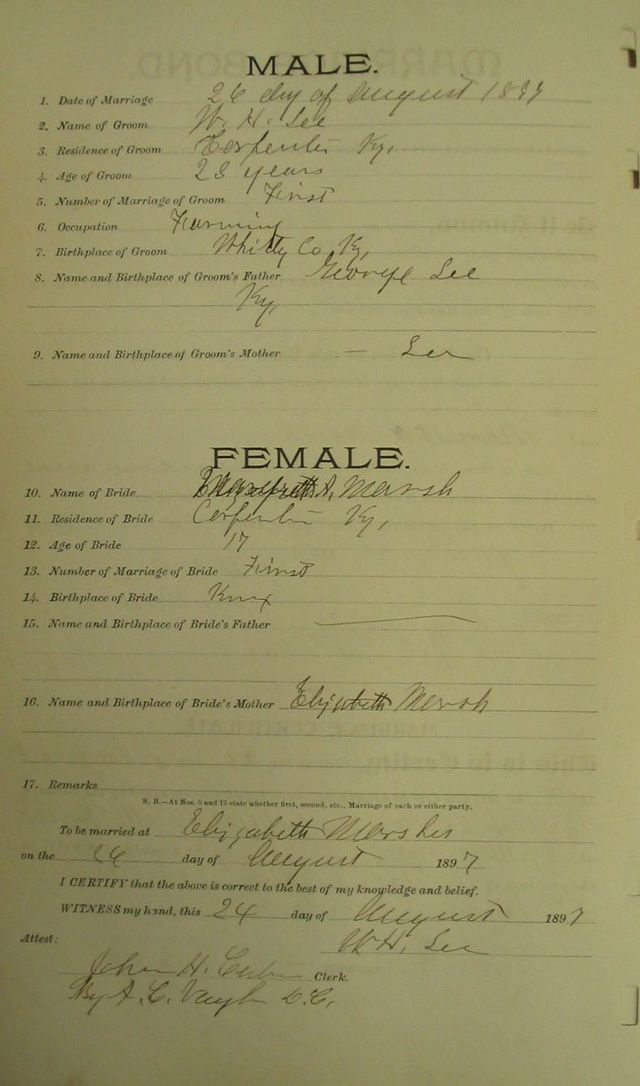 MALE.
1. Date of Marriage 26 day of August 1897
2. Name of Groom W. H. Lee
3. Residence of Groom Carpenter Ky,
4. Age of Groom 28 years
5. Number of Marriage of Groom First
6. Occupation Farming
7. Birthplace of Groom Whitly Co Ky,
8. Name and Birthplace of Groom's Father George Lee
Ky,
9. Name and Birthplace of Groom's Mother — Lee
FEMALE.
10. Name of Bride A, Marsh
11. Residence of Bride Carpenter Ky,
12. Age of Bride 17
13. Number of Marriage of Bride First
14. Birthplace of Bride Knox
15. Name and Birthplace of Bride's Father
16. Name and Birthplace of Bride's Mother Elizabeth Marsh
17. Remarks
N. B.—At Nos. 5 and 13 state whether first, second, etc., Marriage of each or either party.
To be married at Elizabeth Marshes
on the 26 day of August 1897
I CERTIFY that the above is correct to the best of my knowledge and belief.
WITNESS my hand, this 24 day of August 1897
Attest: W. H. Lee
John H. Clerk.
By A. C. D. C.